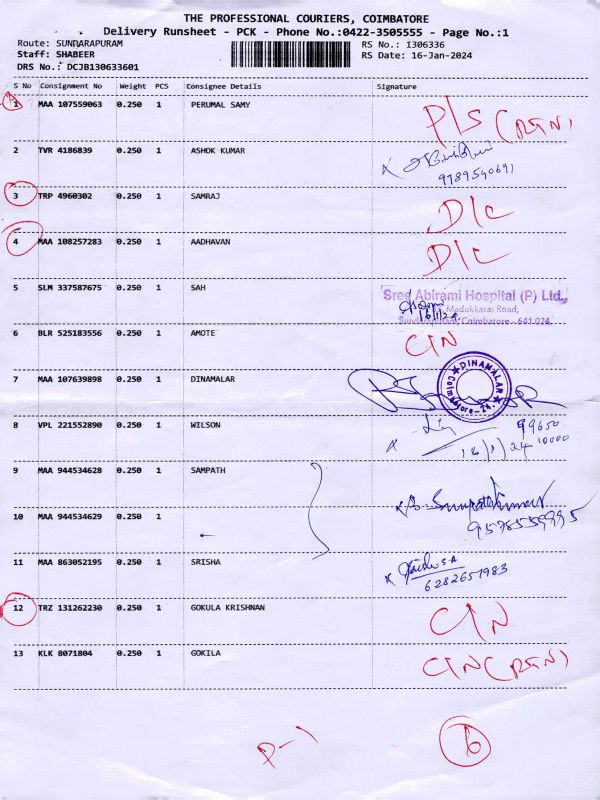 THE PROFESSIONAL COURIERS, COIMBATORE
Delivery Runsheet - PCK - Phone No.:0422-3505555 - Page No.:1
Route: SUNDARAPURAM RS No.: 1306336
Staff: SHABEER RS Date: 16-Jan-2024
DRS No.: DCJB130633601
S No Consignment No Weight PCS Consignee Details Signature
1 MAA 107559063 0.250 1 PERUMAL SAMY P/S (RTN)
2 TVR 4186839 0.250 1 ASHOK KUMAR
9789590691
3 TRP 4960302 0.250 1 SAMRAJ D/C
4 MAA 108257283 0.250 1 AADHAVAN D/C
5 SLM 337587675 0.250 1 SAH Sree Abirami Hospital (P) Ltd.,
Madukkarai Road,
Sundarapuram, Coimbatore - 641 024.
16/1/24
6 BLR 525183556 0.250 1 AMOTE C/N
7 MAA 107639898 0.250 1 DINAMALAR DINAMALAR Coimbatore-24.
8 VPL 221552890 0.250 1 WILSON 99650
16/1/24 10000
9 MAA 944534628 0.250 1 SAMPATH
10 MAA 944534629 0.250 1 9578559995
11 MAA 863052195 0.250 1 SRISHA
6282651983
12 TRZ 131262230 0.250 1 GOKULA KRISHNAN C/N
13 KLK 8071804 0.250 1 GOKILA C/N (RTN)
P-1 6